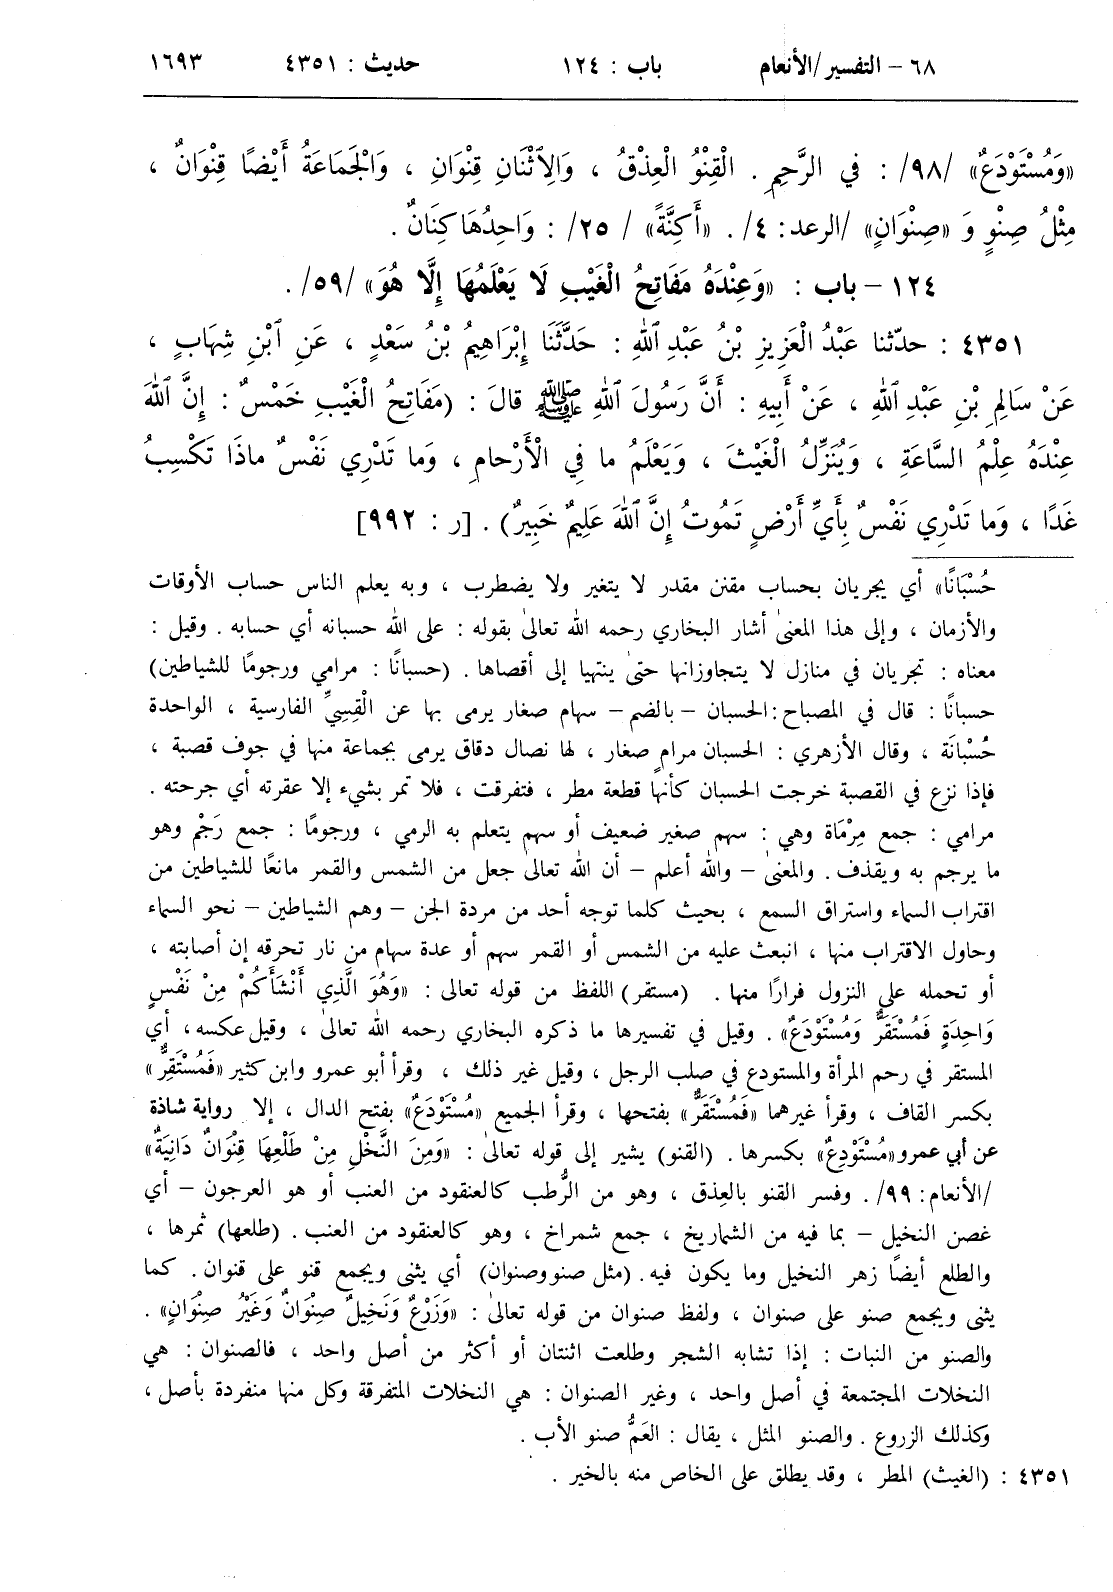 ٦٨ - التفسير/الأنعام باب : ١٢٤ حديث : ٤٣٥١ ١٦٩٣
«وَمُسْتَوْدَعٌ» /٩٨/ : في الرَّحِمِ . الْقِنْوُ الْعِذْقُ ، وَالِٱثْنَانِ قِنْوَانِ ، وَالْجَمَاعَةُ أَيْضًا قِنْوَانٌ ،
مِثْلُ صِنْوٍ وَ «صِنْوَانٍ» /الرعد: ٤/ . «أَكِنَّةً» / ٢٥/ : وَاحِدُهَا كِنَانٌ .
١٢٤ - باب : «وَعِنْدَهُ مَفَاتِحُ الْغَيْبِ لَا يَعْلَمُهَا إِلَّا هُوَ» /٥٩/ .
٤٣٥١ : حدّثنا عَبْدُ الْعَزِيزِ بْنُ عَبْدِ ٱللهِ : حَدَّثَنَا إِبْرَاهِيمُ بْنُ سَعْدٍ ، عَنِ ٱبْنِ شِهَابٍ ،
عَنْ سَالِمِ بْنِ عَبْدِ ٱللهِ ، عَنْ أَبِيهِ : أَنَّ رَسُولَ ٱللهِ ﷺ قالَ : (مَفَاتِحُ الْغَيْبِ خَمْسٌ : إِنَّ ٱللهَ
عِنْدَهُ عِلْمُ السَّاعَةِ ، وَيُنَزِّلُ الْغَيْثَ ، وَيَعْلَمُ ما في الْأَرْحامِ ، وَما تَدْرِي نَفْسٌ ماذَا تَكْسِبُ
غَدًا ، وَما تَدْرِي نَفْسٌ بِأَيِّ أَرْضٍ تَمُوتُ إِنَّ ٱللهَ عَلِيمٌ خَبِيرٌ) . [ر : ٩٩٢]
حُسْبَانًا» أي يجريان بحساب مقنن مقدر لا يتغير ولا يضطرب ، وبه يعلم الناس حساب الأوقات
والأزمان ، وإلى هذا المعنى أشار البخاري رحمه الله تعالى بقوله : على الله حسبانه أي حسابه . وقيل :
معناه : تجريان في منازل لا يتجاوزانها حتى ينتهيا إلى أقصاها . (حسبانًا : مرامي ورجومًا للشياطين)
حسبانًا : قال في المصباح : الحسبان - بالضم - سهام صغار يرمى بها عن الْقِسِيِّ الفارسية ، الواحدة
حُسْبانَة ، وقال الأزهري : الحسبان مرامٍ صغار ، لها نصال دقاق يرمى بجماعة منها في جوف قصبة ،
فإذا نزع في القصبة خرجت الحسبان كأنها قطعة مطر ، فتفرقت ، فلا تمر بشيء إلا عقرته أي جرحته .
مرامي : جمع مِرْمَاة وهي : سهم صغير ضعيف أو سهم يتعلم به الرمي ، ورجومًا : جمع رَجْم وهو
ما يرجم به ويقذف . والمعنى - والله أعلم - أن الله تعالى جعل من الشمس والقمر مانعًا للشياطين من
اقتراب السماء واستراق السمع ، بحيث كلما توجه أحد من مردة الجن - وهم الشياطين - نحو السماء
وحاول الاقتراب منها ، انبعث عليه من الشمس أو القمر سهم أو عدة سهام من نار تحرقه إن أصابته ،
أو تحمله على النزول فرارًا منها . (مستقر) اللفظ من قوله تعالى : «وَهُوَ الَّذِي أَنْشَأَكُمْ مِنْ نَفْسٍ
وَاحِدَةٍ فَمُسْتَقَرٌّ وَمُسْتَوْدَعٌ» . وقيل في تفسيرها ما ذكره البخاري رحمه الله تعالى ، وقيل عكسه ، أي
المستقر في رحم المرأة والمستودع في صلب الرجل ، وقيل غير ذلك ، وقرأ أبو عمرو وابن كثير «فَمُسْتَقِرٌّ»
بكسر القاف ، وقرأ غيرهما «فَمُسْتَقَرٌّ» بفتحها ، وقرأ الجميع «مُسْتَوْدَعٌ» بفتح الدال ، إلا رواية شاذة
عن أبي عمرو «مُسْتَوْدِعٌ» بكسرها . (القنو) يشير إلى قوله تعالى : «وَمِنَ النَّخْلِ مِنْ طَلْعِهَا قِنْوَانٌ دَانِيَةٌ»
/الأنعام : ٩٩/ . وفسر القنو بالعِذق ، وهو من الرُّطب كالعنقود من العنب أو هو العرجون - أي
غصن النخيل - بما فيه من الشماريخ ، جمع شمراخ ، وهو كالعنقود من العنب . (طلعها) ثمرها ،
والطلع أيضًا زهر النخيل وما يكون فيه . (مثل صنو وصنوان) أي يثنى ويجمع قنو على قنوان . كما
يثنى ويجمع صنو على صنوان ، ولفظ صنوان من قوله تعالى : «وَزَرْعٌ وَنَخِيلٌ صِنْوَانٌ وَغَيْرُ صِنْوَانٍ» .
والصنو من النبات : إذا تشابه الشجر وطلعت اثنتان أو أكثر من أصل واحد ، فالصنوان : هي
النخلات المجتمعة في أصل واحد ، وغير الصنوان : هي النخلات المتفرقة وكل منها منفردة بأصل ،
وكذلك الزروع . والصنو المثل ، يقال : العَمُّ صنو الأب .
٤٣٥١ : (الغيث) المطر ، وقد يطلق على الخاص منه بالخير .